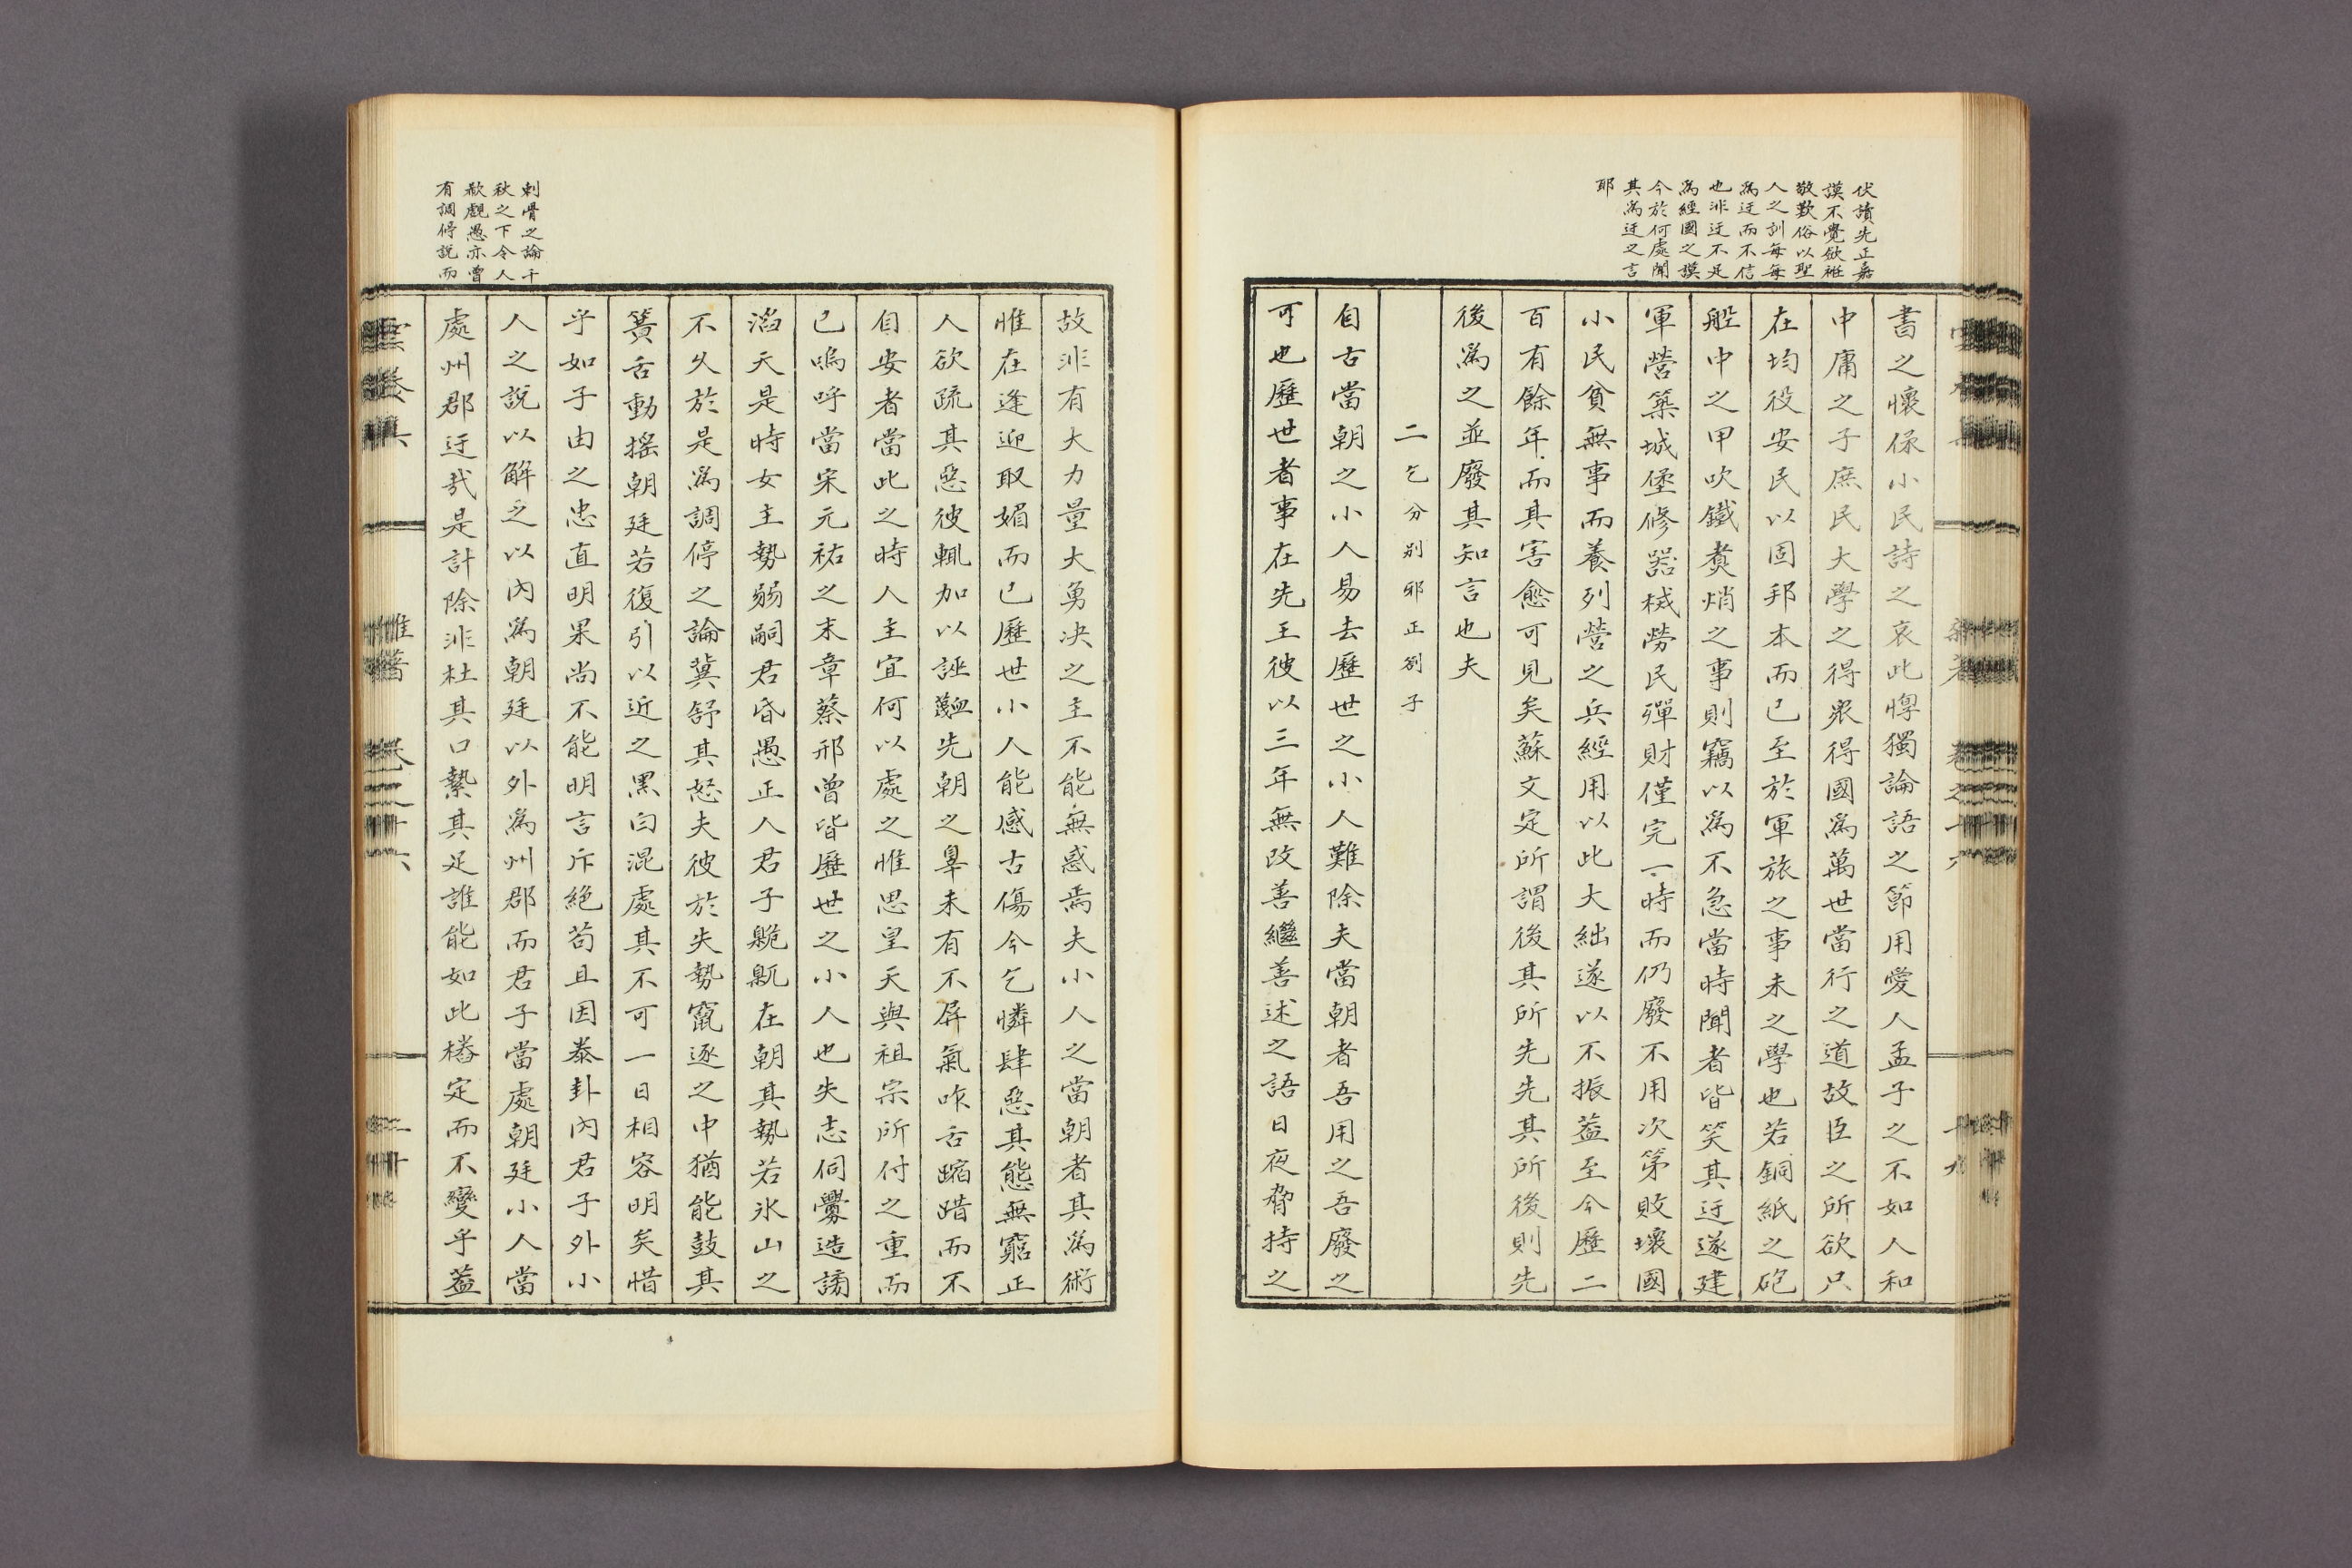 伏讀先正嘉
謨不覺斂袵
敬歎俗以聖
人之訓每每
爲迂而不信
也非迂不足
爲經國之謨
今於何處聞
其爲迂之言
耶
書之懷保小民詩之哀此惸獨論語之節用愛人孟子之不如人和
中庸之子庶民大學之得衆得國爲萬世當行之道故臣之所欲只
在均役安民以固邦本而已至於軍旅之事未之學也若銅紙之砲
船中之甲吹鐵煑焇之事則竊以爲不急當時聞者皆笑其迂遂建
軍營築城堡修器械勞民殫財僅完一時而仍廢不用次第敗壞國
小民貧無事而養列營之兵經用以此大絀遂以不振蓋至今歷二
百有餘年而其害愈可見矣蘇文定所謂後其所先先其所後則先
後爲之並廢其知言也夫
二乞分別邪正劄子
自古當朝之小人易去歷世之小人難除夫當朝者吾用之吾廢之
可也歷世者事在先王彼以三年無改善繼善述之語日夜脅持之
剌骨之論千
秋之下令人
歎觀愚亦曾
有調停說而
故非有大力量大勇決之主不能無惑焉夫小人之當朝者其爲術
惟在逢迎取媚而已歷世小人能感古傷今乞憐肆惡其態無窮正
人欲疏其惡彼輒加以誣衊先朝之辠未有不屛氣咋舌蹜踖而不
自安者當此之時人主宜何以處之惟思皇天與祖宗所付之重而
已嗚呼當宋元祐之末章蔡邢曾皆歷世之小人也失志伺釁造謗
滔天是時女主勢弱嗣君昏愚正人君子臲卼在朝其勢若氷山之
不久於是爲調停之論冀舒其怒夫彼於失勢竄逐之中猶能鼓其
簧舌動搖朝廷若復引以近之黑白混處其不可一日相容明矣惜
乎如子由之忠直明果尚不能明言斥絶苟且因泰卦內君子外小
人之說以解之以內爲朝廷以外爲州郡而君子當處朝廷小人當
處州郡迂哉是計除非杜其口縶其足誰能如此樁定而不變乎蓋